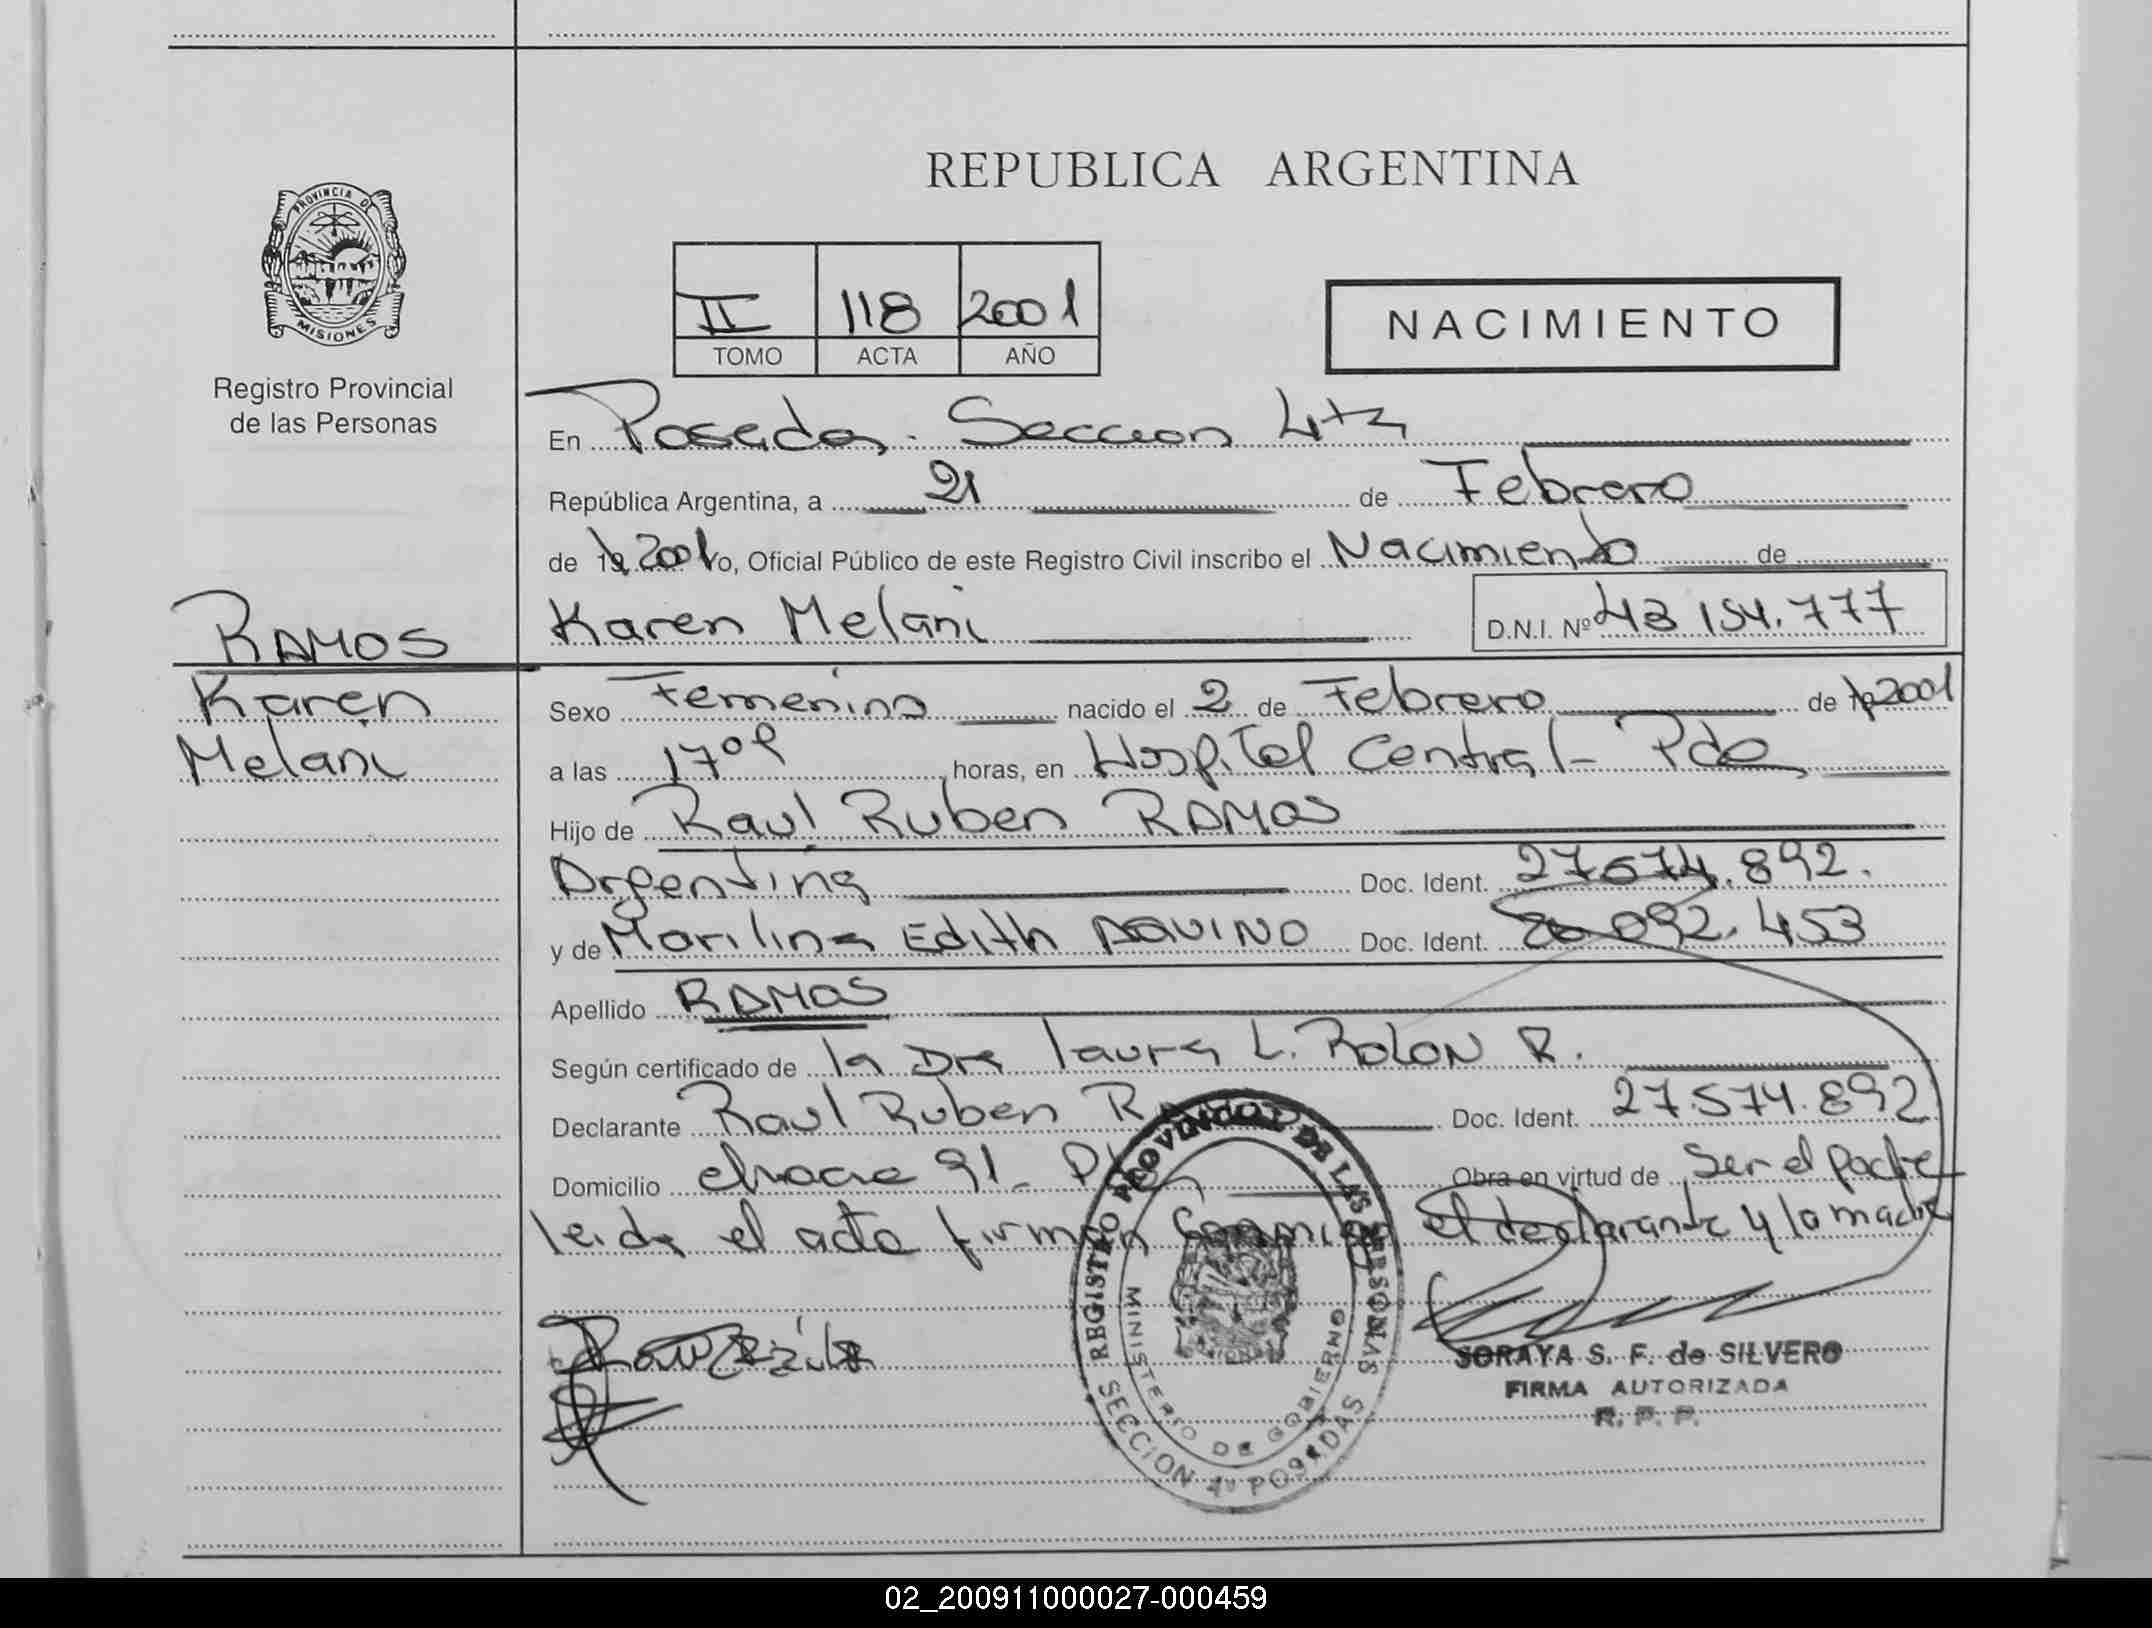 REPUBLICA ARGENTINA
PROVINCIA DE
MISIONES
Registro Provincial
de las Personas
II 118 2001
TOMO ACTA AÑO
NACIMIENTO
En Posadas. Seccion 4ta
República Argentina, a 21 de Febrero
de 19 2001 Yo, Oficial Público de este Registro Civil inscribo el Nacimiento de
Karen Melani D.N.I. Nº 43 154.777
RAMOS
Karen
Melani
Sexo Femenino nacido el 2 de Febrero de 19 2001
a las 17 horas, en Hospital Central - Pda
Hijo de Raul Ruben RAMOS
Argentina Doc. Ident. 27 574.892.
y de Marilina Edith AQUINO Doc. Ident. 092.453
Apellido RAMOS
Según certificado de la Dra laura L. ROLON R.
Declarante Raul Ruben Doc. Ident. 27.574.892
Domicilio chacra 91 - Obra en virtud de Ser el padre
leida el acta firman conmigo el declarante y la madre
REGISTRO PROVINCIAL DE LAS PERSONAS
MINISTERIO DE GOBIERNO
SECCION 4ª POSADAS
SORAYA S. F. de SILVERO
FIRMA AUTORIZADA
R. P. P.
02_200911000027-000459